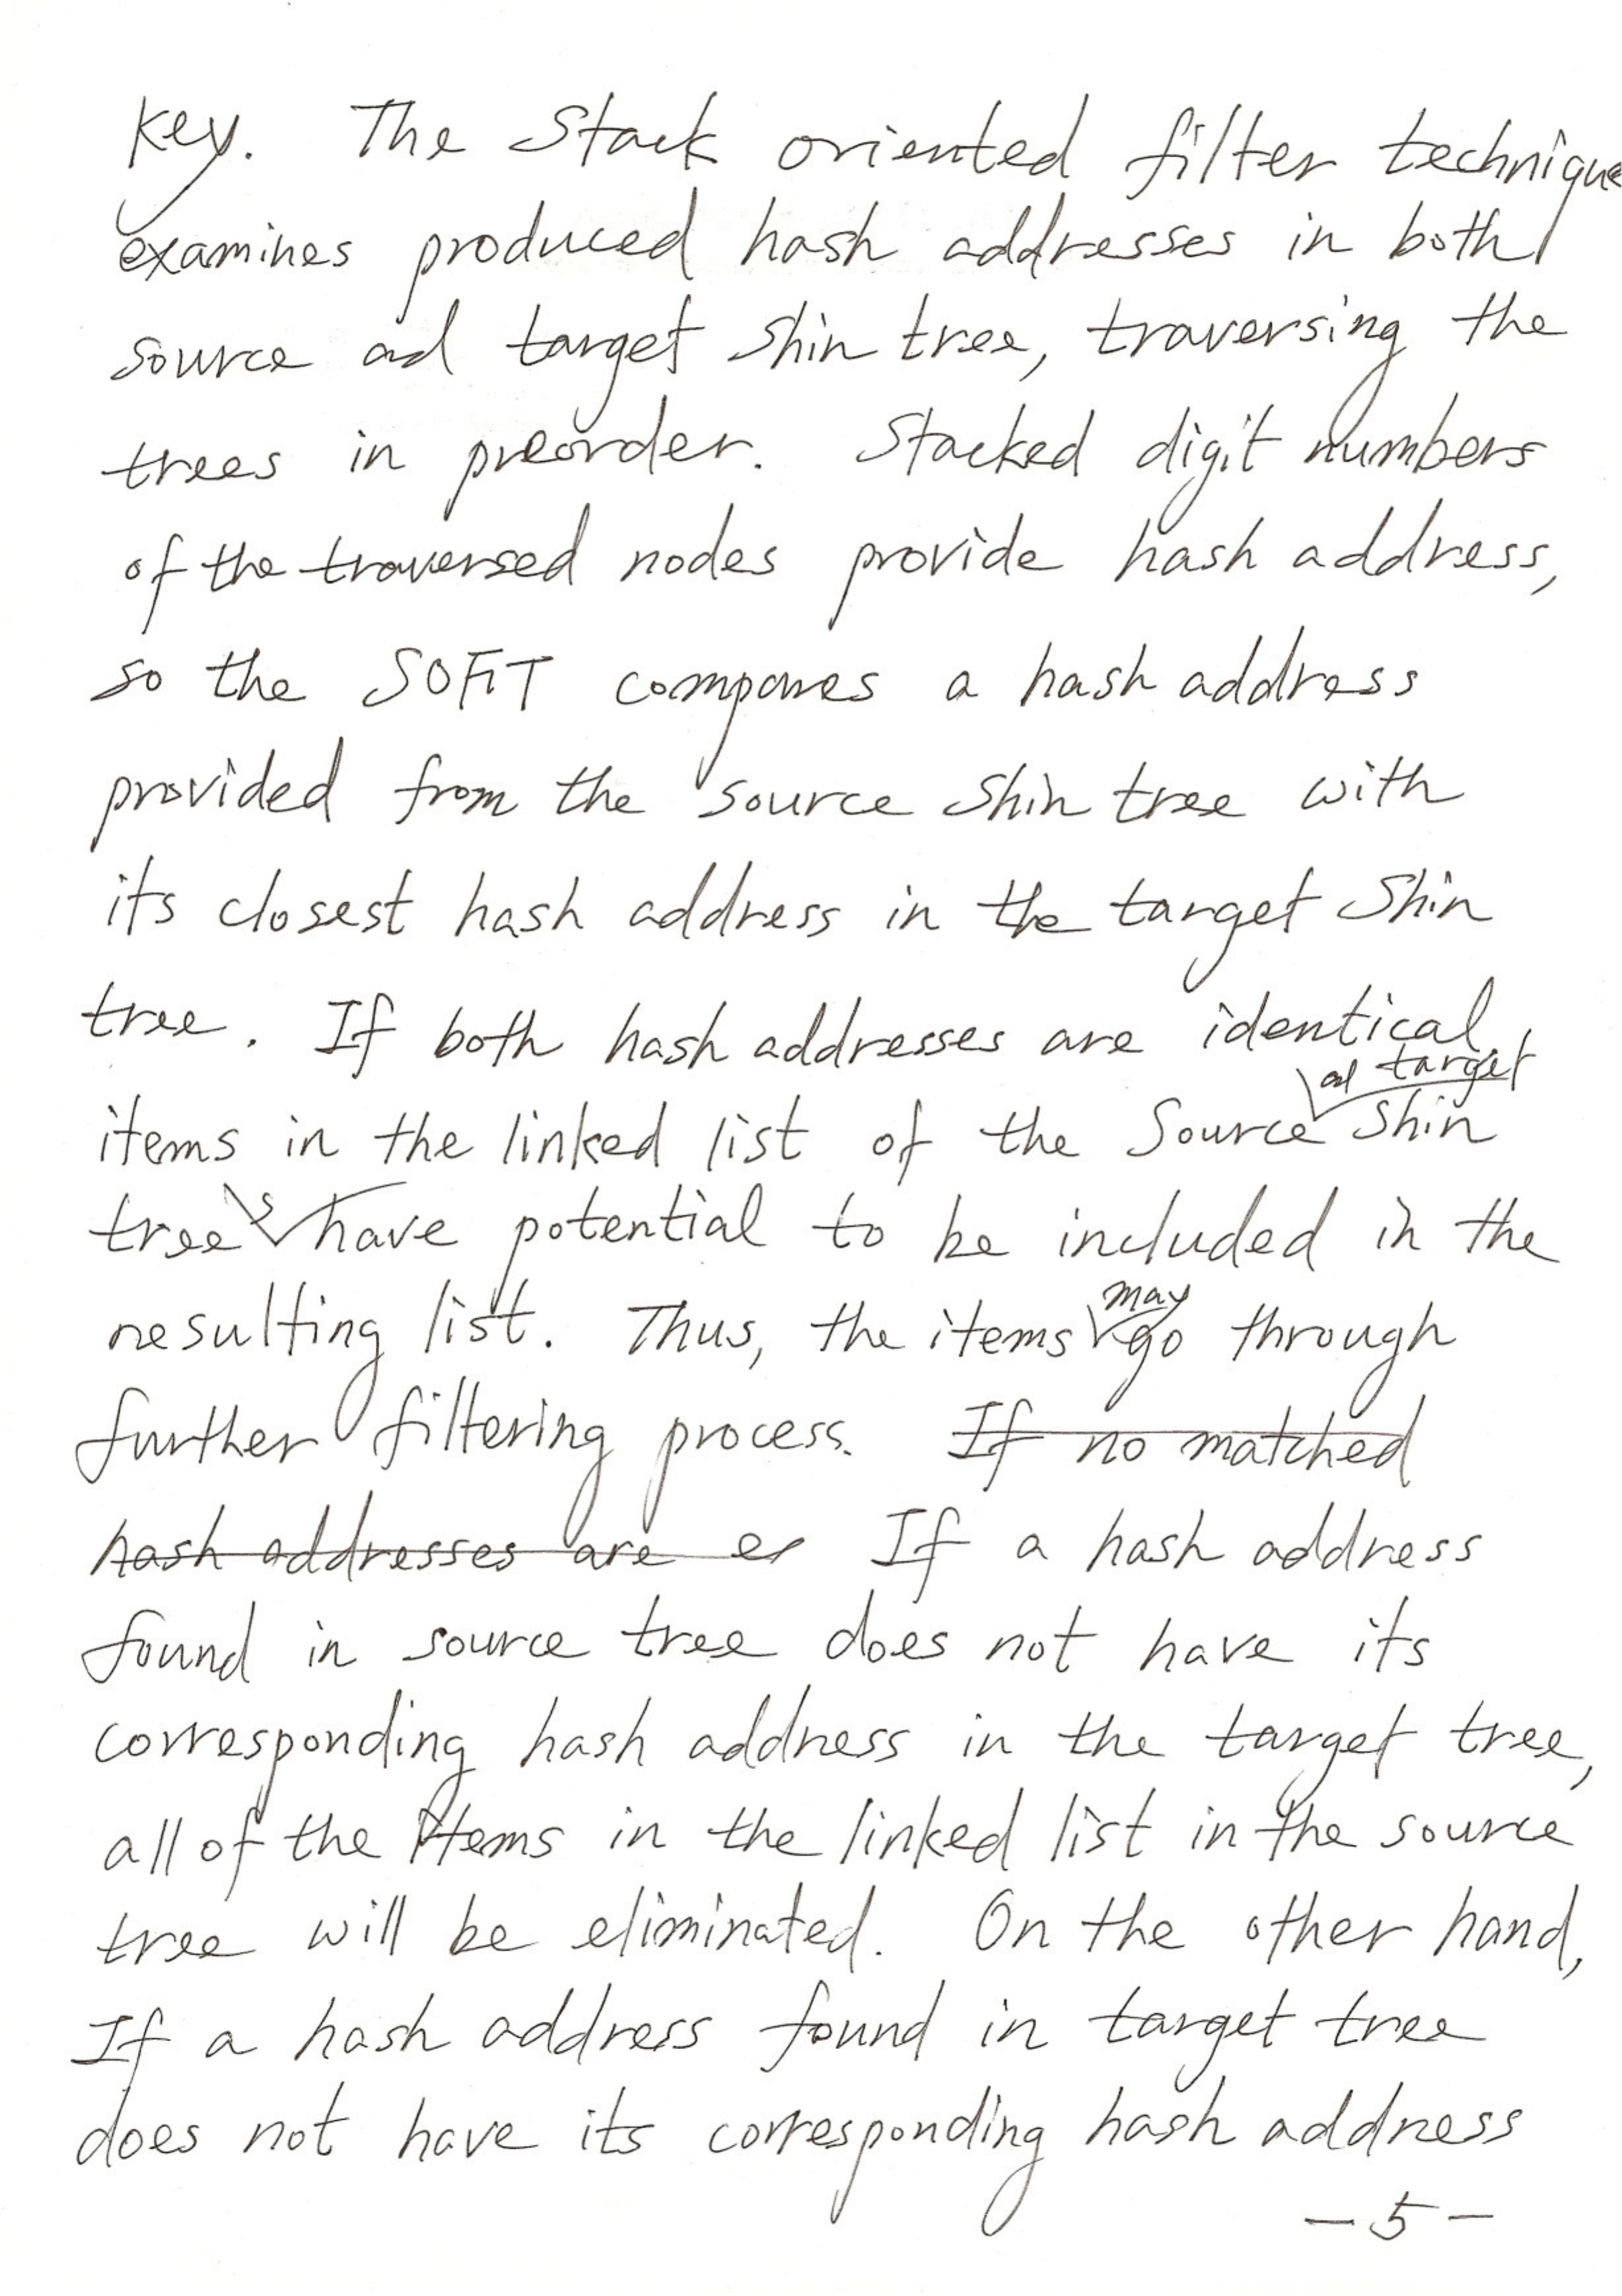 Key. The Stack oriented filter technique
examines produced hash addresses in both
source ad target Shin tree, traversing the
trees in preorder. Stacked digit numbers
of the traversed nodes provide hash address,
so the SOFiT compares a hash address
provided from the source Shin tree with
its closest hash address in the target Shin
tree. If both hash addresses are identical,
ad target
items in the linked list of the Source Shin
trees have potential to be included in the
may
resulting list. Thus, the items go through
further filtering process. If no matched
hash addresses are er If a hash address
found in source tree does not have its
corresponding hash address in the target tree,
all of the items in the linked list in the source
tree will be eliminated. On the other hand,
If a hash address found in target tree
does not have its corresponding hash address
- 5 -